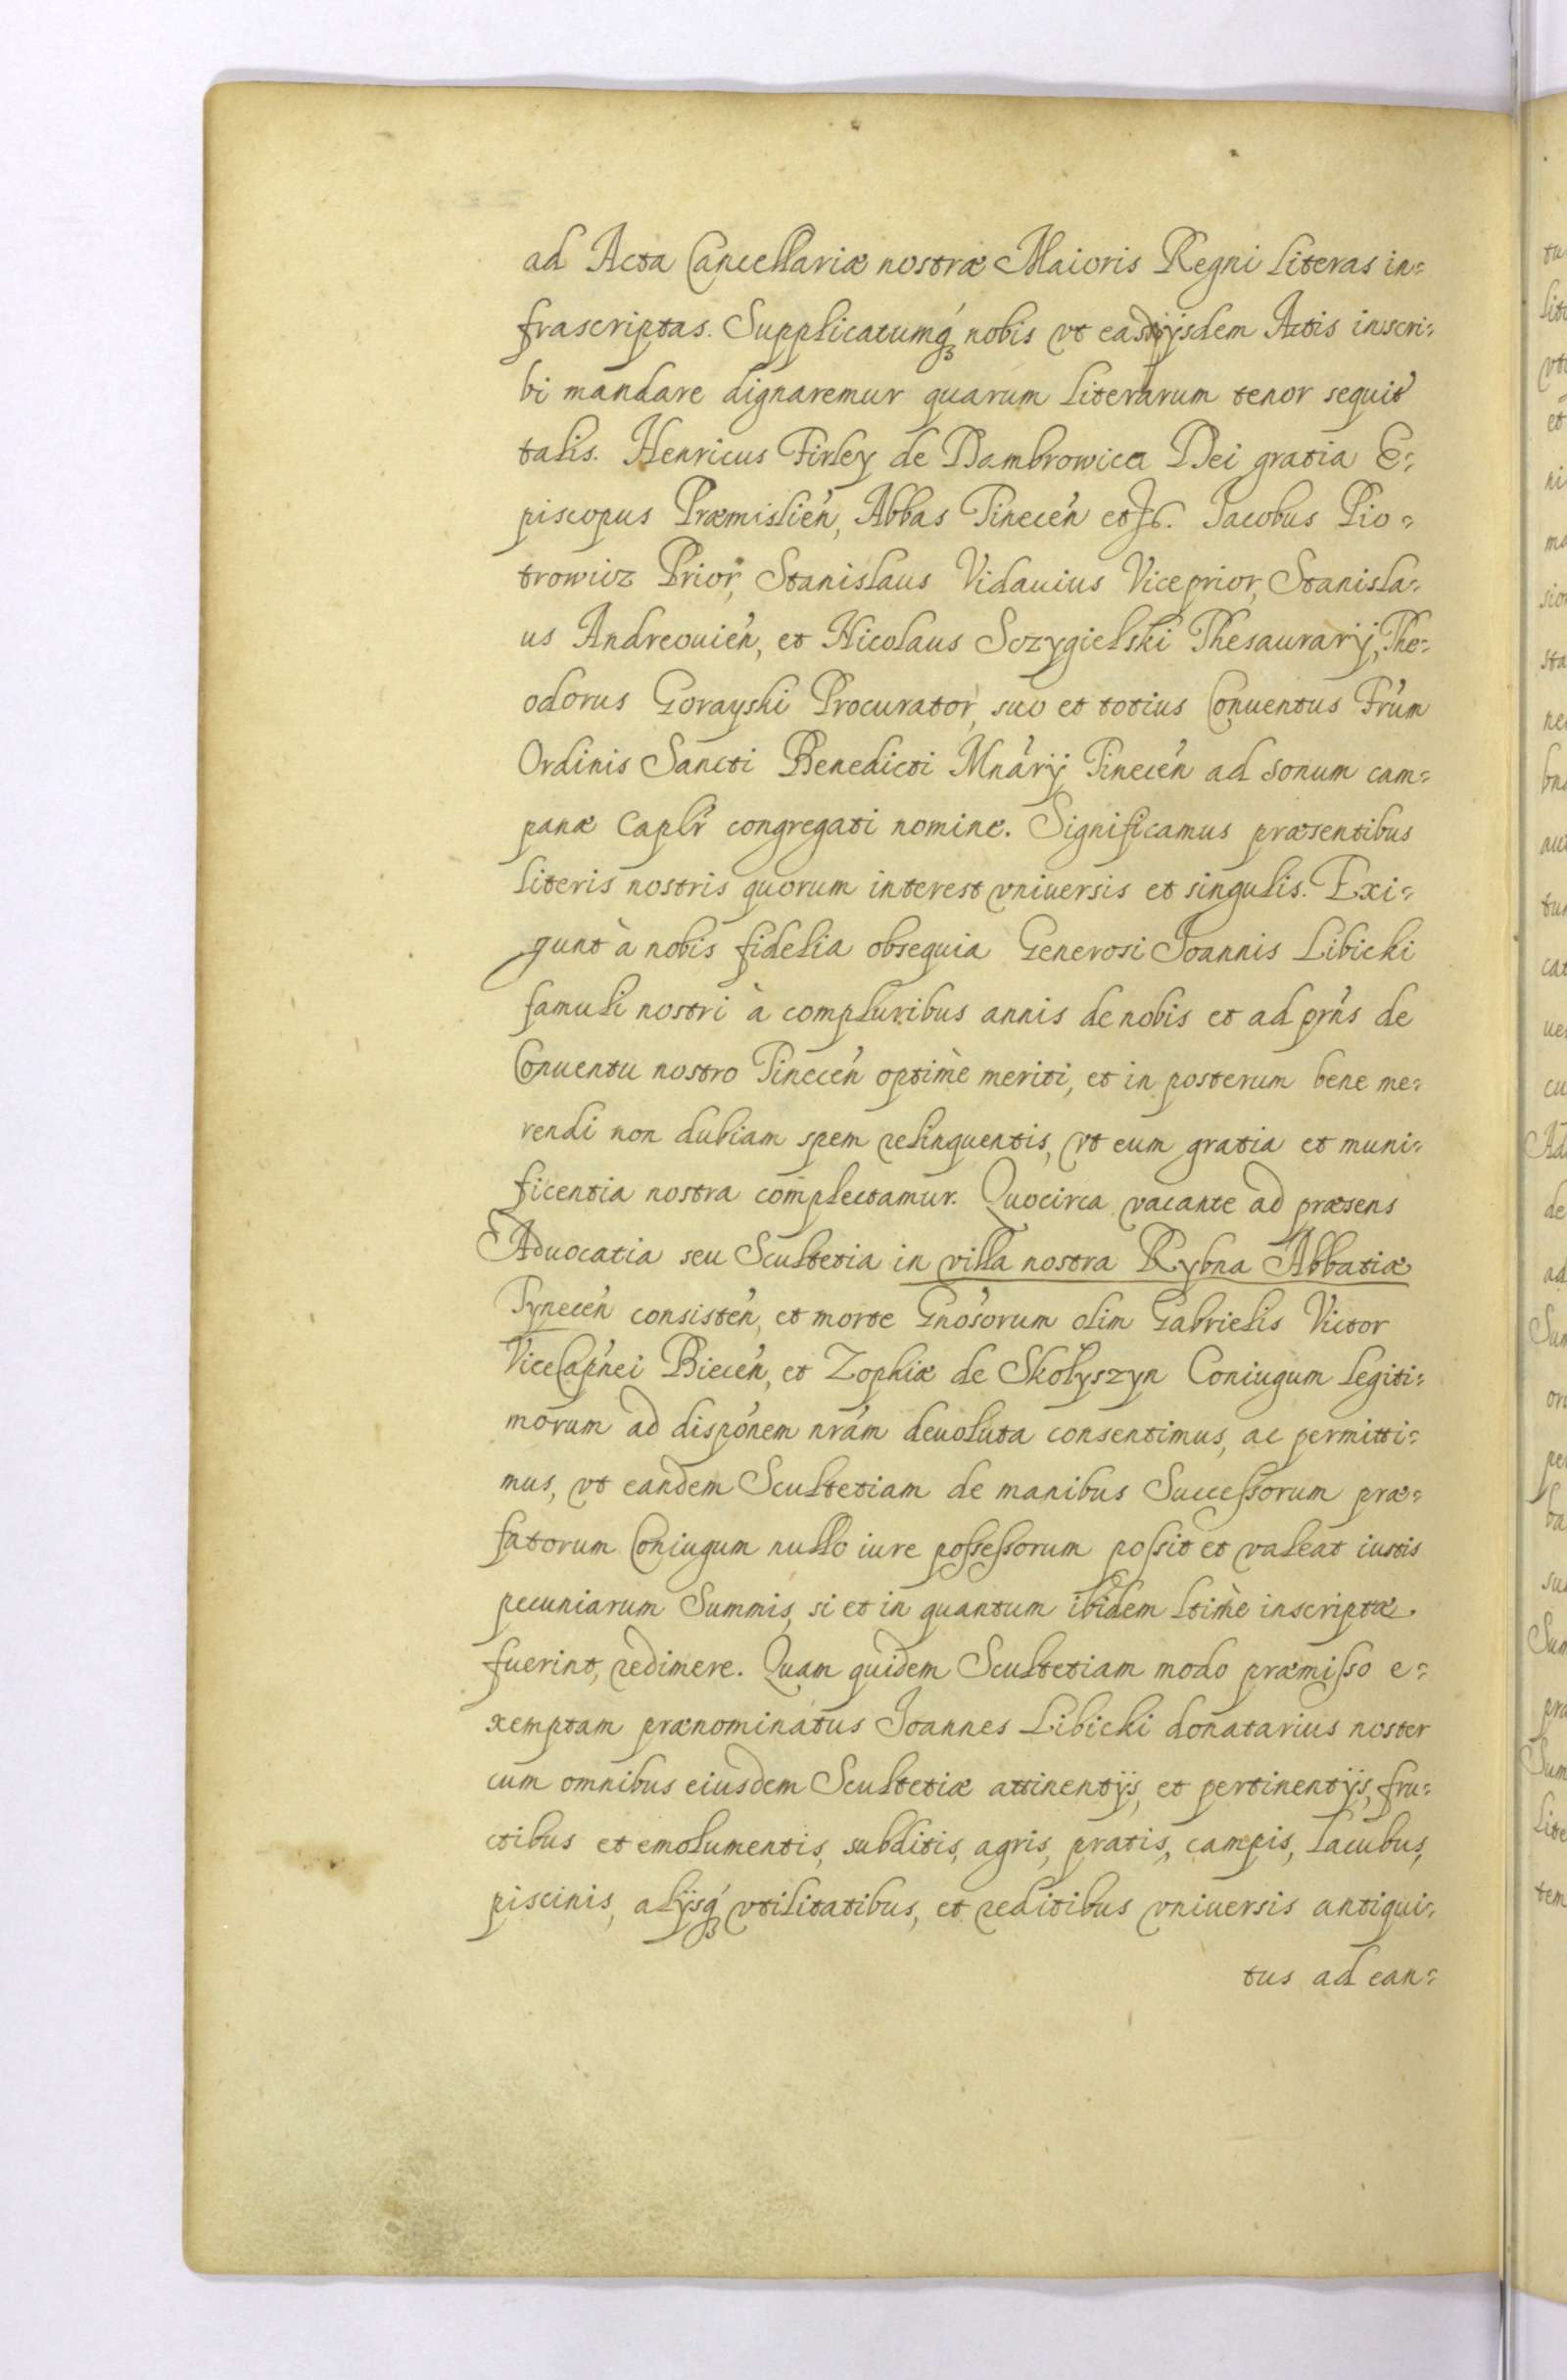 ad Acta Cancellariæ nostræ Maioris Regni literas in=
frascriptas. Supplicatumq́ nobis vt easd ijsdem Actis inscri=
bi mandare dignaremur quarum literarum tenor sequit́
talis. Henricus Firley de Dambrowica Dei gratia E=
piscopus Præmislień, Abbas Tineceń et. Jacobus Pio=
trowicz Prior, Stanislaus Vidauius Viceprior, Stanisla=
us Andreouień, et Nicolaus Sczygielski Thesaurarij, The=
odorus Gorayski Procurator, suo et totius Conuentus Frúm
Ordinis Sancti Benedicti Mnárij Tineceń ad sonum cam=
panæ Caplŕ congregati nomine. Significamus præsentibus
literis nostris quorum interest vniuersis et singulis. Exi=
gunt à nobis fidelia obsequia Generosi Joannis Libicki
famuli nostri à compluribus annis de nobis et ad prńs de
Conuentu nostro Tineceń optimè meriti, et in posterum bene me=
rendi non dubiam spem relinquentis, vt eum gratia et muni=
ficentia nostra complectamur. Quocirca vacante ad præsens
Aduocatia seu Scultetia in villa nostra Rybna Abbatiæ
Tyneceń consisteń, et morte Gnósorum olim Gabrielis Victor
ViceCapńei Bieceń, et Zophiæ de Skołyszyn Coniugum legiti=
morum ad dispónem nrám deuoluta consentimus, ac permitti=
mus, vt eandem Scultetiam de manibus Successorum præ=
fatorum Coniugum nullo iure possessorum possit et valeat iustis
pecuniarum Summis, si et in quantum ibidem ltimè inscriptæ
fuerint, redimere. Quam quidem Scultetiam modo præmisso e=
xemptam prænominatus Joannes Libicki donatarius noster
cum omnibus eiusdem Scultetiæ attinentijs, et pertinentijs, fru=
ctibus et emolumentis, subditis, agris, pratis, campis, lacubus,
piscinis, alijsq́ vtilitatibus, et reditibus vniuersis antiqui=
tus ad ean=